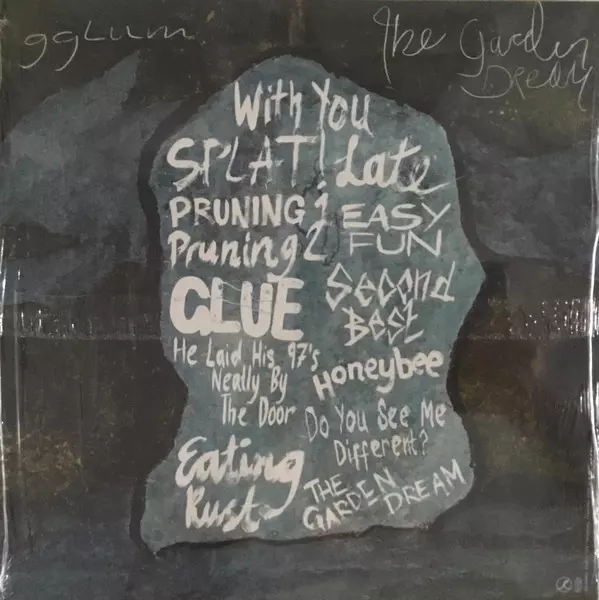 gglum
The Garden
Dream
With You
SPLAT!
Late
PRUNING 1
Pruning 2
EASY
FUN
GLUE
Second
Best
He Laid His 97's
Neally By
The Door
Honeybee
Do You See Me
Different?
Eating
Rust
THE
GARDEN
DREAM